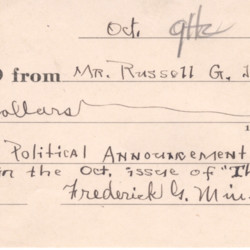 Oct. 9th
from Mr. Russell G.
ollars
Political Announcement
n the Oct. issue of "Th
Frederick G.